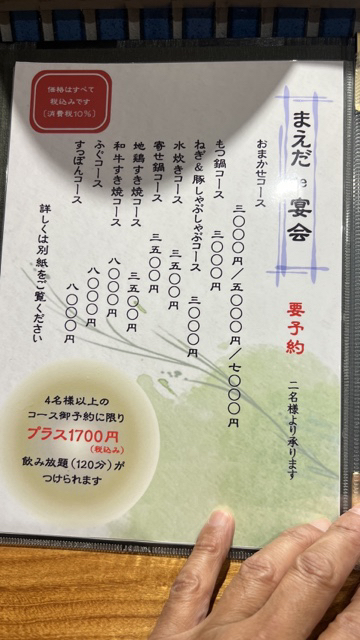 まえだ de 宴会
要予約
二名様より承ります
おまかせコース
三〇〇〇円/五〇〇〇円/七〇〇〇円
もつ鍋コース 三〇〇〇円
ねぎ&豚しゃぶしゃぶコース 三〇〇〇円
水炊きコース 三五〇〇円
寄せ鍋コース 三五〇〇円
地鶏すき焼コース 三五〇〇円
和牛すき焼コース 八〇〇〇円
ふぐコース 八〇〇〇円
すっぽんコース 八〇〇〇円
詳しくは別紙をご覧ください
価格はすべて
税込みです
(消費税10%)
4名様以上の
コース御予約に限り
プラス1700円
(税込み)
飲み放題(120分)が
つけられます